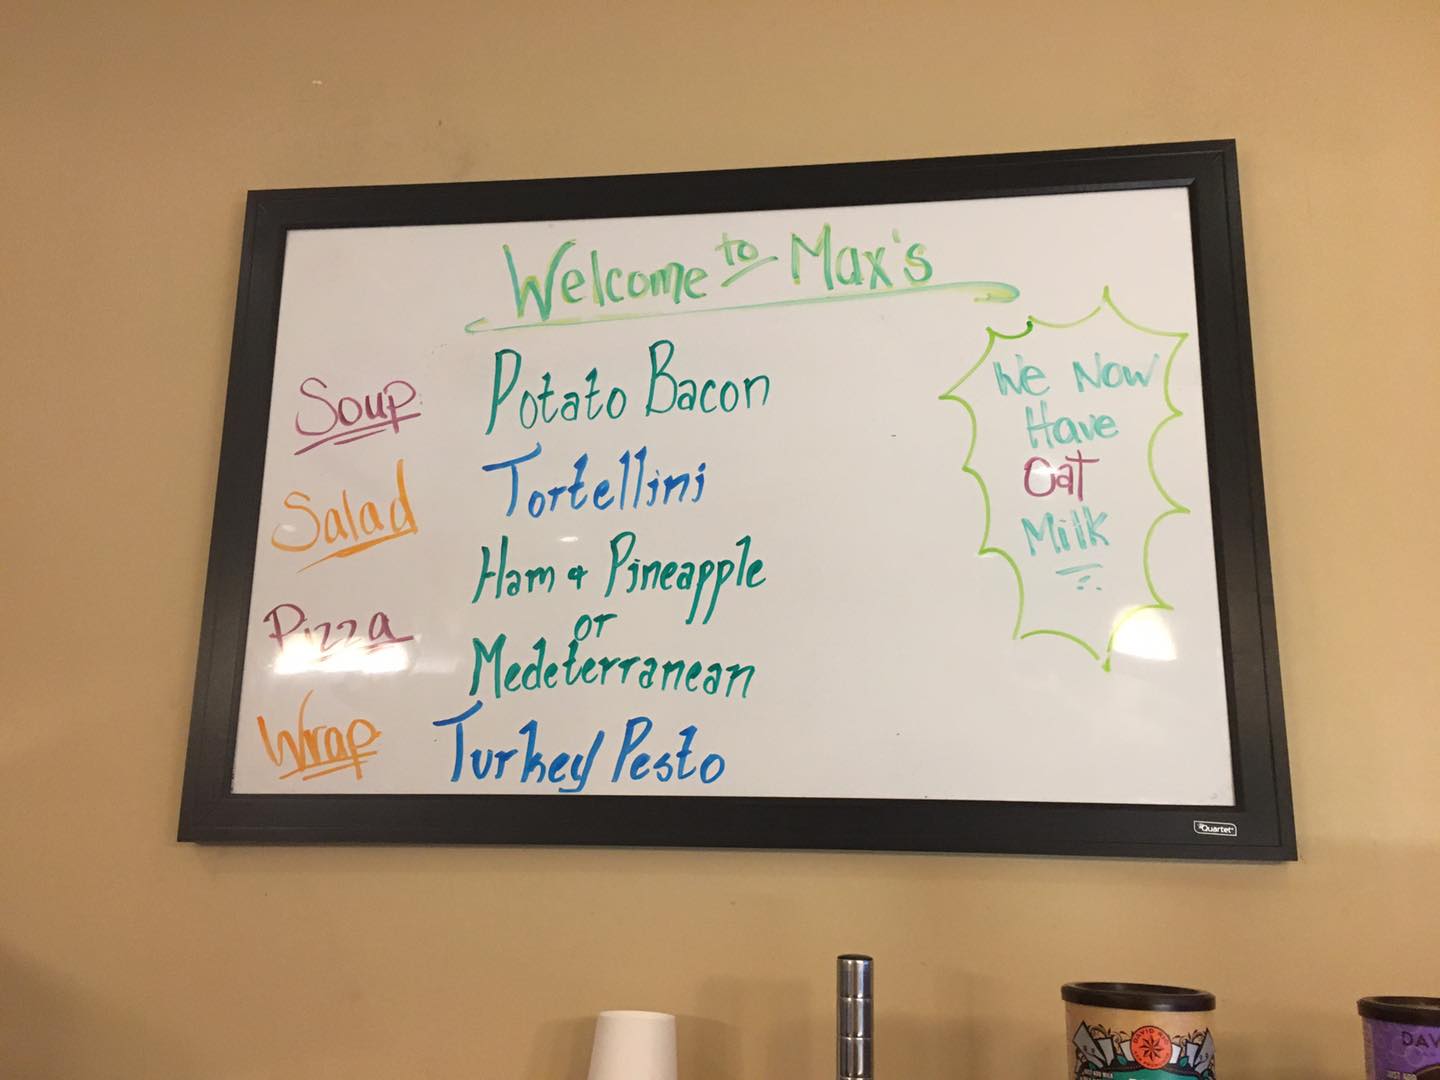 Welcome to Max's
Soup Potato Bacon
Salad Tortellini
Pizza Ham & Pineapple
or
Medeterranean
Wrap Turkey Pesto
We Now
Have
Oat
Milk
Quartet
DAVID RIO
DAV